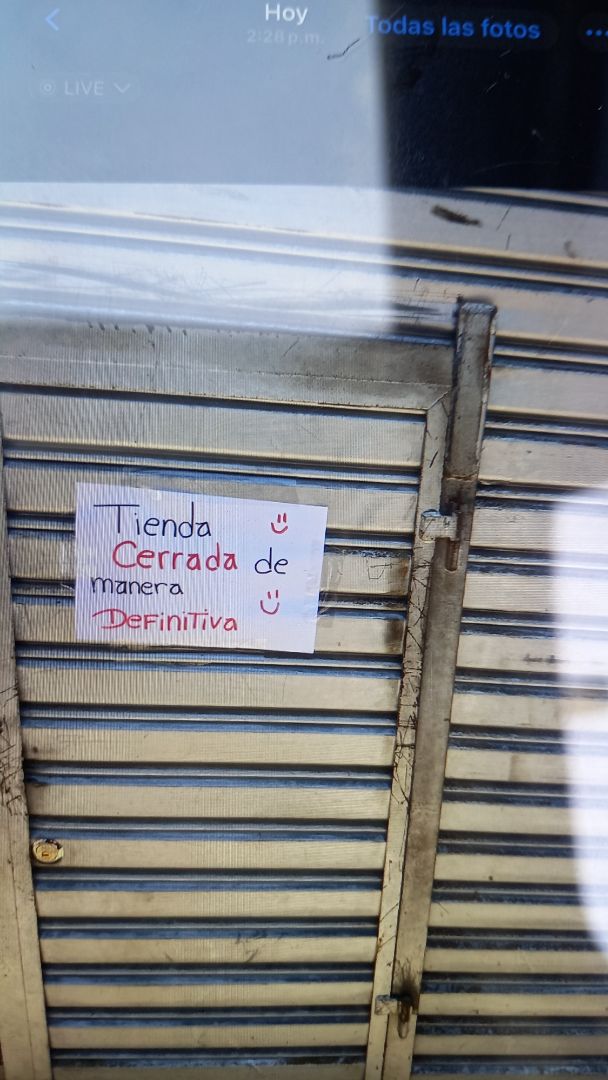 Hoy
2:28 p.m.
Todas las fotos
LIVE
Tienda
Cerrada de
manera
Definitiva